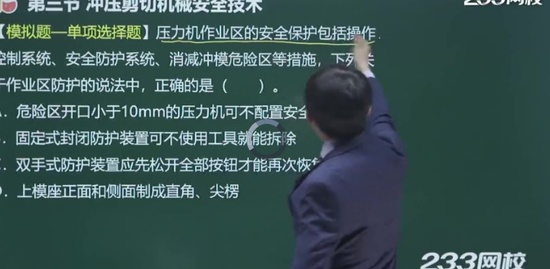 第三节 冲压剪切机械安全技术
233网校
【模拟题—单项选择题】压力机作业区的安全保护包括操作
控制系统、安全防护系统、消减冲模危险区等措施，下列关
于作业区防护的说法中，正确的是（ ）。
A．危险区开口小于10mm的压力机可不配置安全
固定式封闭防护装置可不使用工具就能拆除
双手式防护装置应先松开全部按钮才能再次恢
D．上模座正面和侧面制成直角、尖楞
233网校